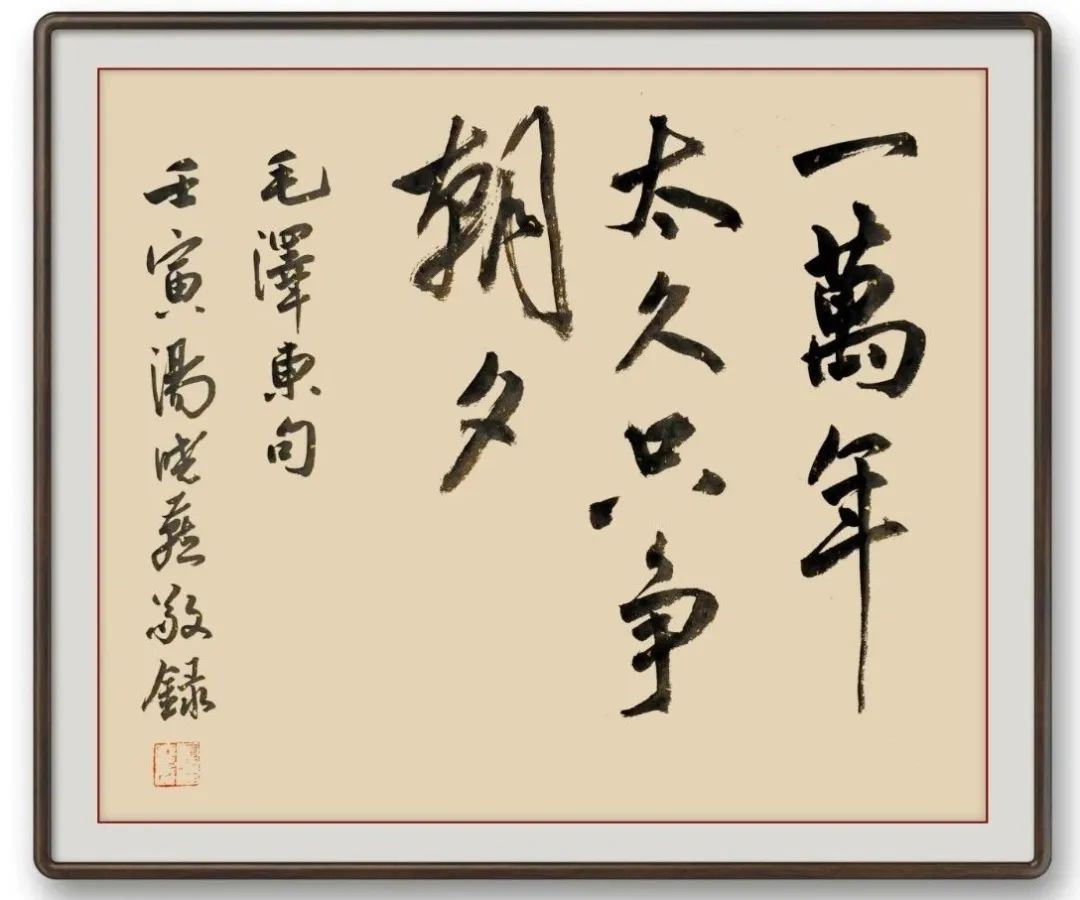 一萬年
太久只争
朝夕
毛澤東句
壬寅湯曉燕敬録